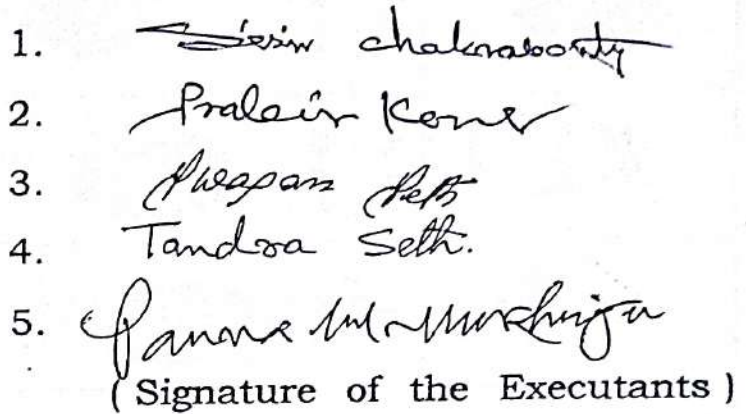 1. Sisir Chakraborty
2. Prabir Koner
3. Swapan Seth
4. Tandra Seth.
5.
( Signature of the Executants )